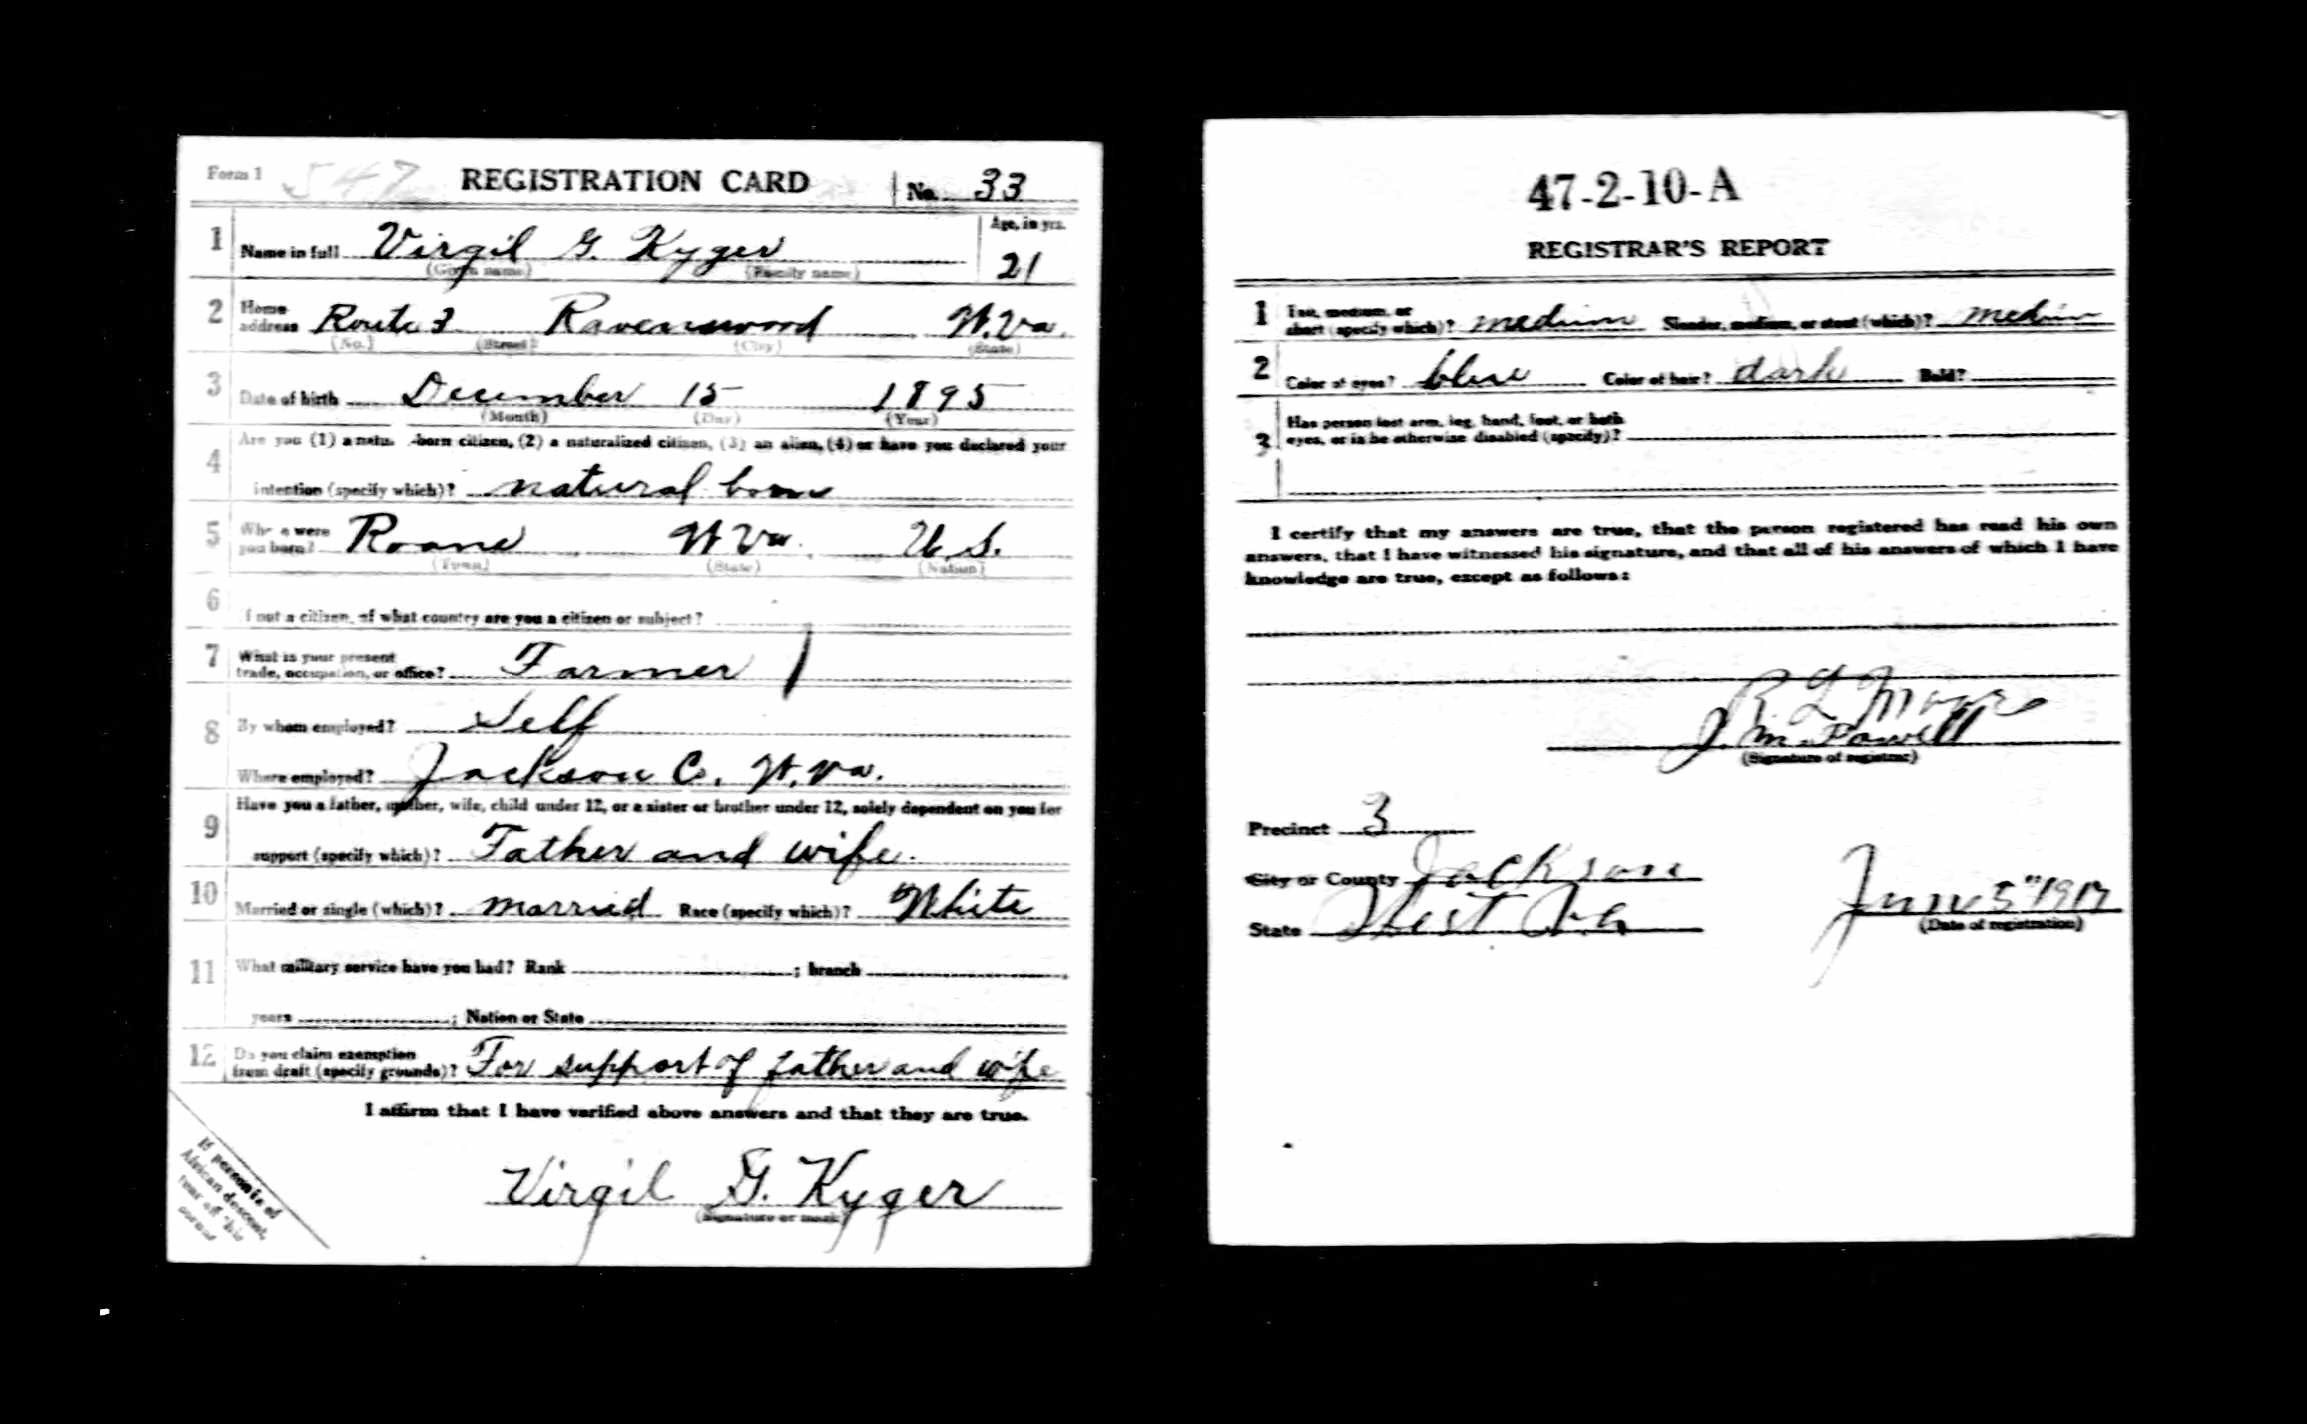 Form 1 547 REGISTRATION CARD No. 33
1 Name in full Virgil G. Kyger Age, in yrs. 21
(Given name) (Family name)
2 Home address Route 3 Ravenswood W.Va.
(No.) (Street) (City) (State)
3 Date of birth December 15 1895
(Month) (Day) (Year)
4 Are you (1) a natu. -born citizen, (2) a naturalized citizen, (3) an alien, (4) or have you declared your
intention (specify which)? natural born
5 Where were you born? Roane W Va. U. S.
(Town) (State) (Nation)
6 If not a citizen, of what country are you a citizen or subject?
7 What is your present trade, occupation, or office? Farmer
8 By whom employed? Self
Where employed? Jackson Co. W. Va.
9 Have you a father, mother, wife, child under 12, or a sister or brother under 12, solely dependent on you for
support (specify which)? Father and wife.
10 Married or single (which)? married Race (specify which)? White
11 What military service have you had? Rank ; branch
years ; Nation or State
12 Do you claim exemption from draft (specify grounds)? For support of father and wife
I affirm that I have verified above answers and that they are true.
Virgil G. Kyger
(Signature or mark)
If person is of
African descent,
tear off this
corner
47-2-10-A
REGISTRAR'S REPORT
1 Tall, medium, or short (specify which)? medium Slender, medium, or stout (which)? medium
2 Color of eyes? blue Color of hair? dark Bald?
3 Has person lost arm, leg, hand, foot, or both
eyes, or is he otherwise disabled (specify)?
I certify that my answers are true, that the person registered has read his own
answers, that I have witnessed his signature, and that all of his answers of which I have
knowledge are true, except as follows:
R L Moore
J. M. Powell
(Signature of registrar)
Precinct 3
City or County Jackson
State West Va
June 5" 1917
(Date of registration)